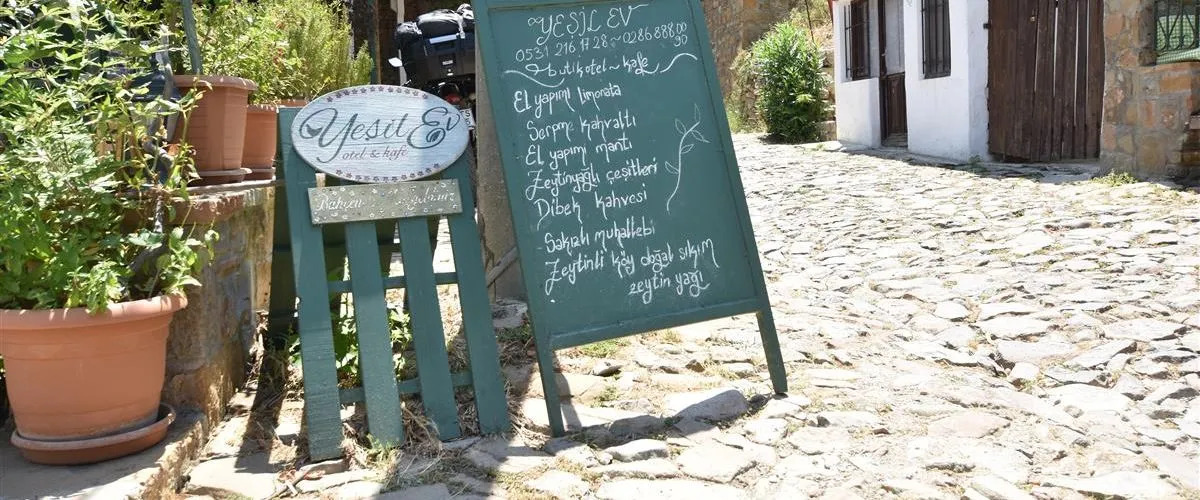 Yeşil Ev
otel & kafe
YEŞİL EV
0531 216 17 28 ~ 0286 888 00 90
butik otel ~ kafe
El yapımı limonata
Serpme kahvaltı
El yapımı mantı
Zeytinyağlı çeşitleri
Dibek kahvesi
Sakızlı muhallebi
Zeytinli köy doğal sıkım
zeytin yağı